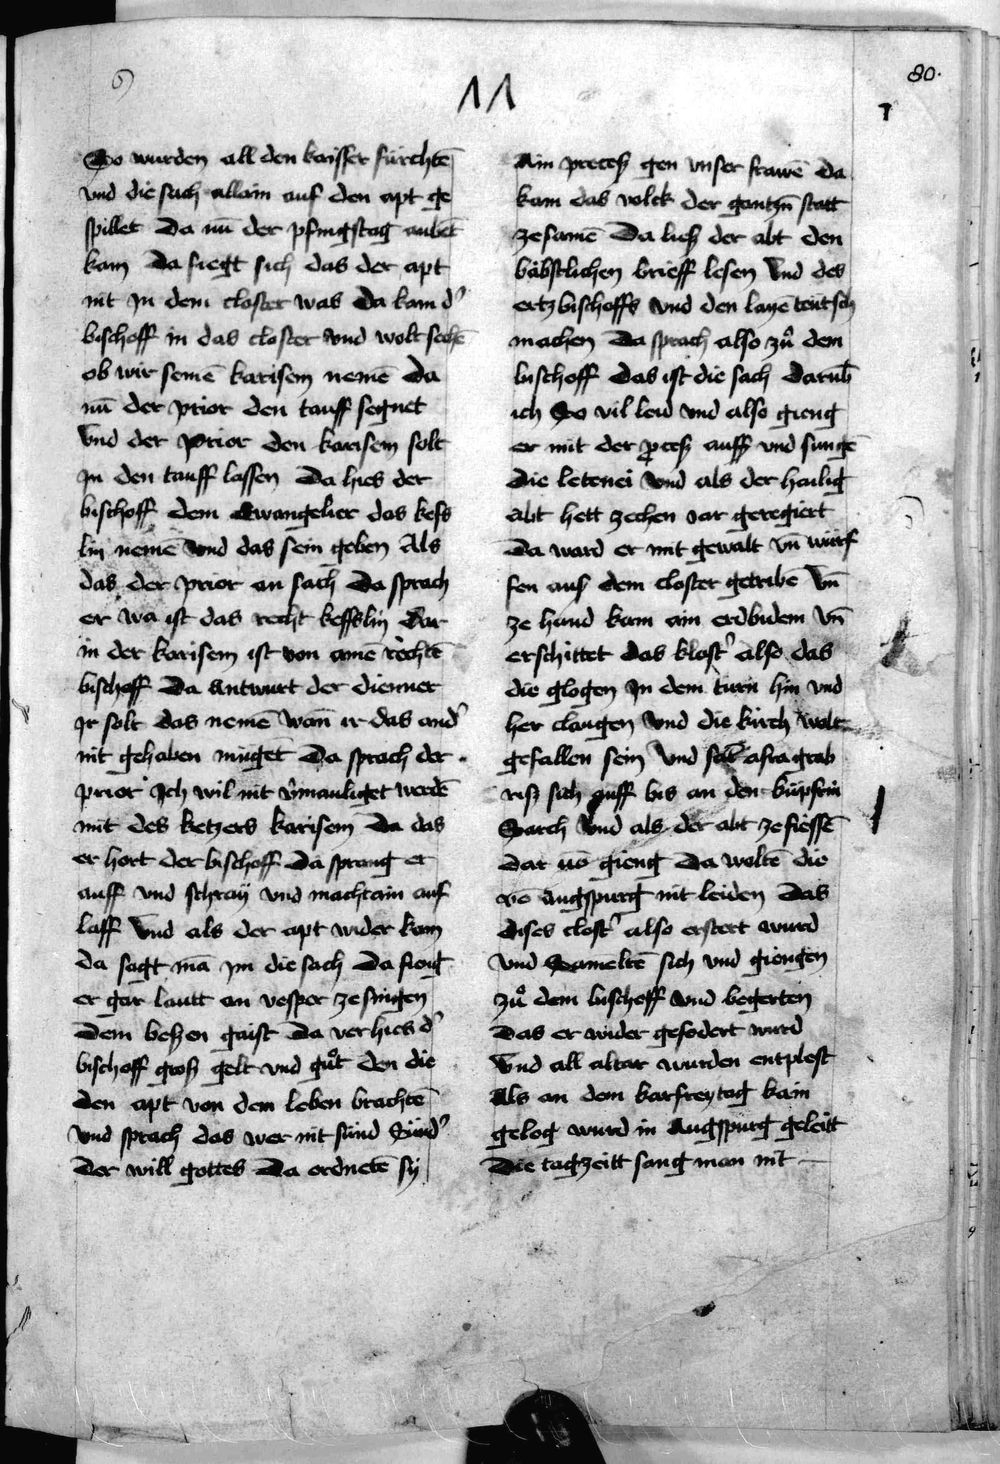 6)
11
80.
1
So wurden all den kaisser fürchtē
vnd die sach allain auf den apt ge
spillet Da nū der pfingstag aubet
kam Da fiegt sich das der apt
nit Jn dem closter was Da kam d'
bischoff in das closter vnd wolt sechē
ob wir seinē karisem nemē Da
nū der prior den tauff segnet
vnd der prior den karisem solt
Jn den tauff lassen Da hies der
bischoff dem Ewangelier das kefs
lin nemē vnd das sein geben Als
das der prior an sach Da sprach
er wa ist das recht kefflin Dar
in der karisem ist von ainē rechtē
bischoff Da antwurt der dienner
Jr solt das nemē wan̄ ir das and'
nit gehaben mügēt Da sprach der
prior Jch wil nit v'manliget werdē
mit des ketzers karisem Da das
er hort der bischoff Da sprang er
auff vnd schray vnd macht ain auf
laff vnd als der apt wider kam
da sagt mā im die sach Da fieng
er gar lautt an vesper ze singen
Dem beßen gaist Da verhies d'
bischoff groß gelt vnd gůt den die
den apt von dem leben brachtē
vnd sprach das wer nit sünd Sund'
Der will gottes Da ordnetē sy
Ain preceß gen vnser frawē da
kam das volck der gantzn̄ statt
zesamē Da ließ der abt den
bäbstlichen brieff lesen vnd des
ertzbischoffs vnd den laye teutsch
machen Da sprach also zů dem
bischoff Das ist die sach Darūb
ich So vil leid vnd also gieng
er mit der preceß auff vnd sungē
Die letenei vnd als der hailig
abt hett zechen Jar geregiert
Da ward er mit gewalt vn̄ würf
fen auß dem closter getribē vn̄
ze hand kam ain erdbidem vn̄
erschittet das klost' also das
die glogen Jn dem turn hin vnd
her clangen vnd die kirch wolt
gefallen sein vnd sāt afra grab
riß sich auff bis an den küpfrin
Sarch vnd als der abt ze fiessē
dar uō gieng Da woltē die
vō augspurg nit leiden Das
dises clost' also erstert wurd
vnd Sameltē sich vnd giengen
zů dem bischoff vnd begerten
Das er wider gefodert wurd
vnd all altar wurden entplest
Als an dem karfreytag kain
gelog wurd in Augspurg geleitt
Die tagzeitt sang man nit